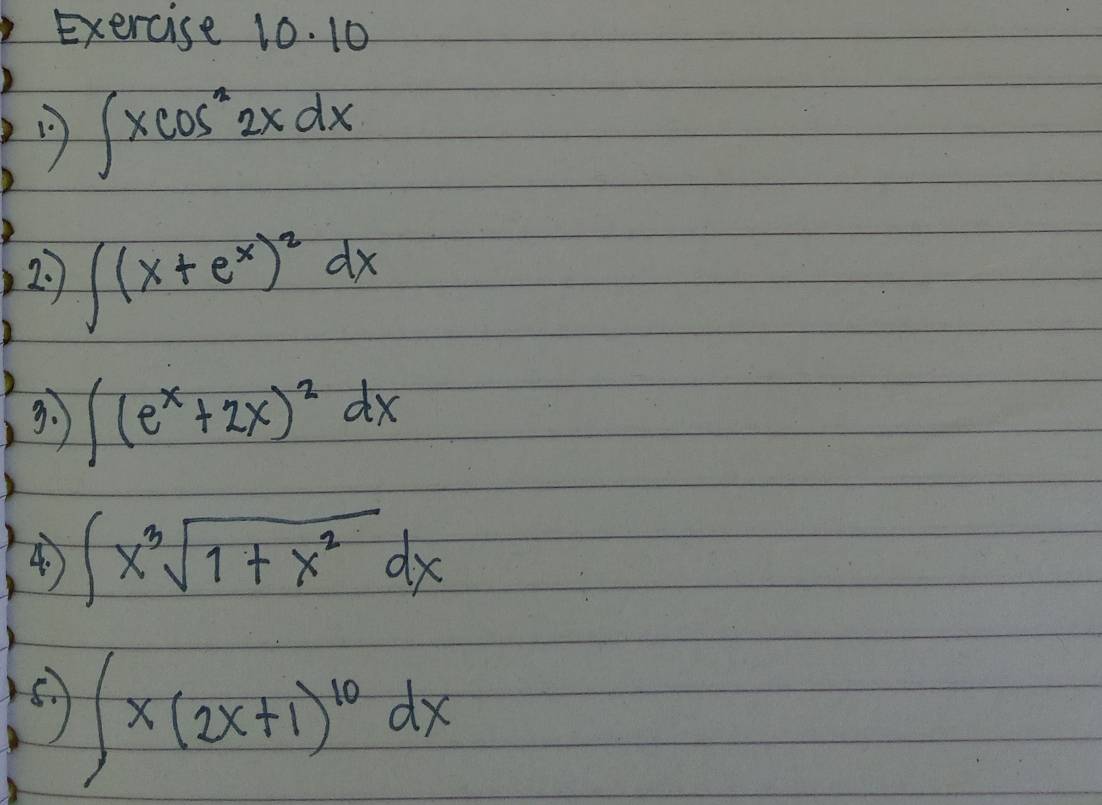 Exercise 10.10
1.) ∫ x cos² 2x dx
2.) ∫ (x + eˣ)² dx
3.) ∫ (eˣ + 2x)² dx
4.) ∫ x³ √(1 + x²) dx
5.) ∫ x (2x+1)¹⁰ dx